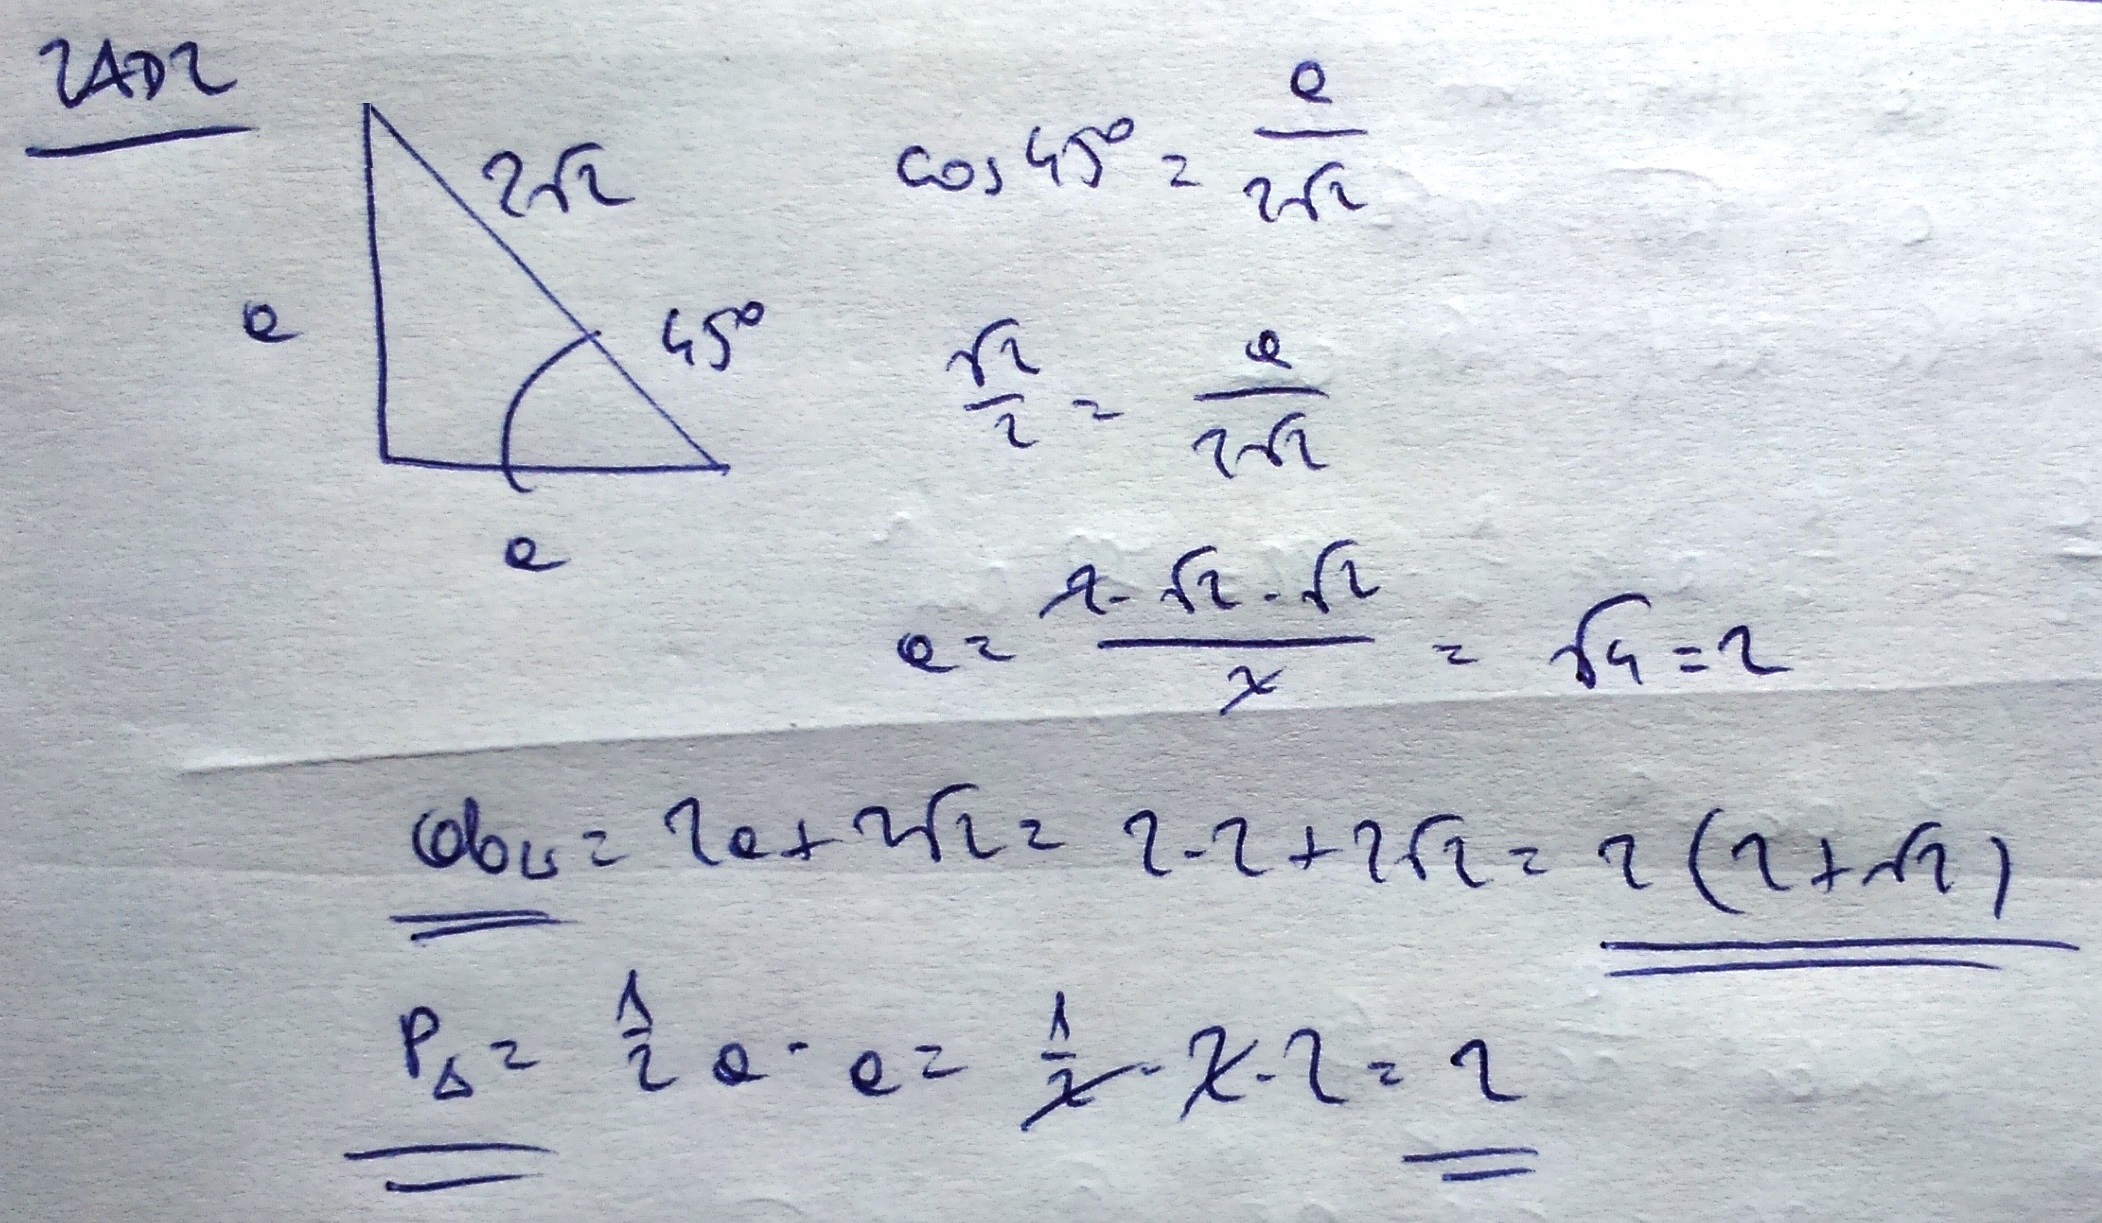 ZAD2
2√2
a
45°
a
cos 45° = a/2√2
√2/2 = a/2√2
a = 2·√2·√2/2 = √4 = 2
Obw = 2a + 2√2 = 2·2 + 2√2 = 2(2+√2)
P△ = 1/2 a·a = 1/2·2·2 = 2